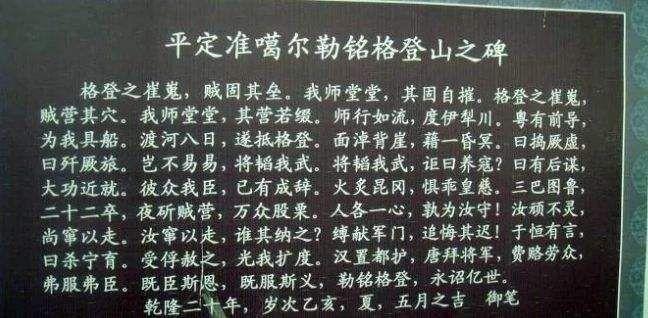 平定准噶尔勒铭格登山之碑
格登之崔嵬，贼固其垒。我师堂堂，其固自摧。格登之崔嵬，
贼营其穴。我师堂堂，其营若缀。师行如流，度伊犁川。粤有前导，
为我具船。渡河八日，遂抵格登。面淖背崖，藉一昏冥。曰捣厥虚，
曰歼厥旅。岂不易易，将韬我武。将韬我武，讵曰养寇？曰有后谋，
大功近就。彼众我臣，已有成辞。火炎昆冈，惧乖皇慈。三巴图鲁，
二十二卒，夜斫贼营，万众股栗。人各一心，孰为汝守！汝顽不灵，
尚窜以走。汝窜以走，谁其纳之？缚献军门，追悔其迟！于恒有言，
曰杀宁育。受俘赦之，光我扩度。汉置都护，唐拜将军，费赂劳众，
弗服弗臣。既臣斯恩，既服斯义，勒铭格登，永诏亿世。
乾隆二十年，岁次乙亥，夏，五月之吉 御笔